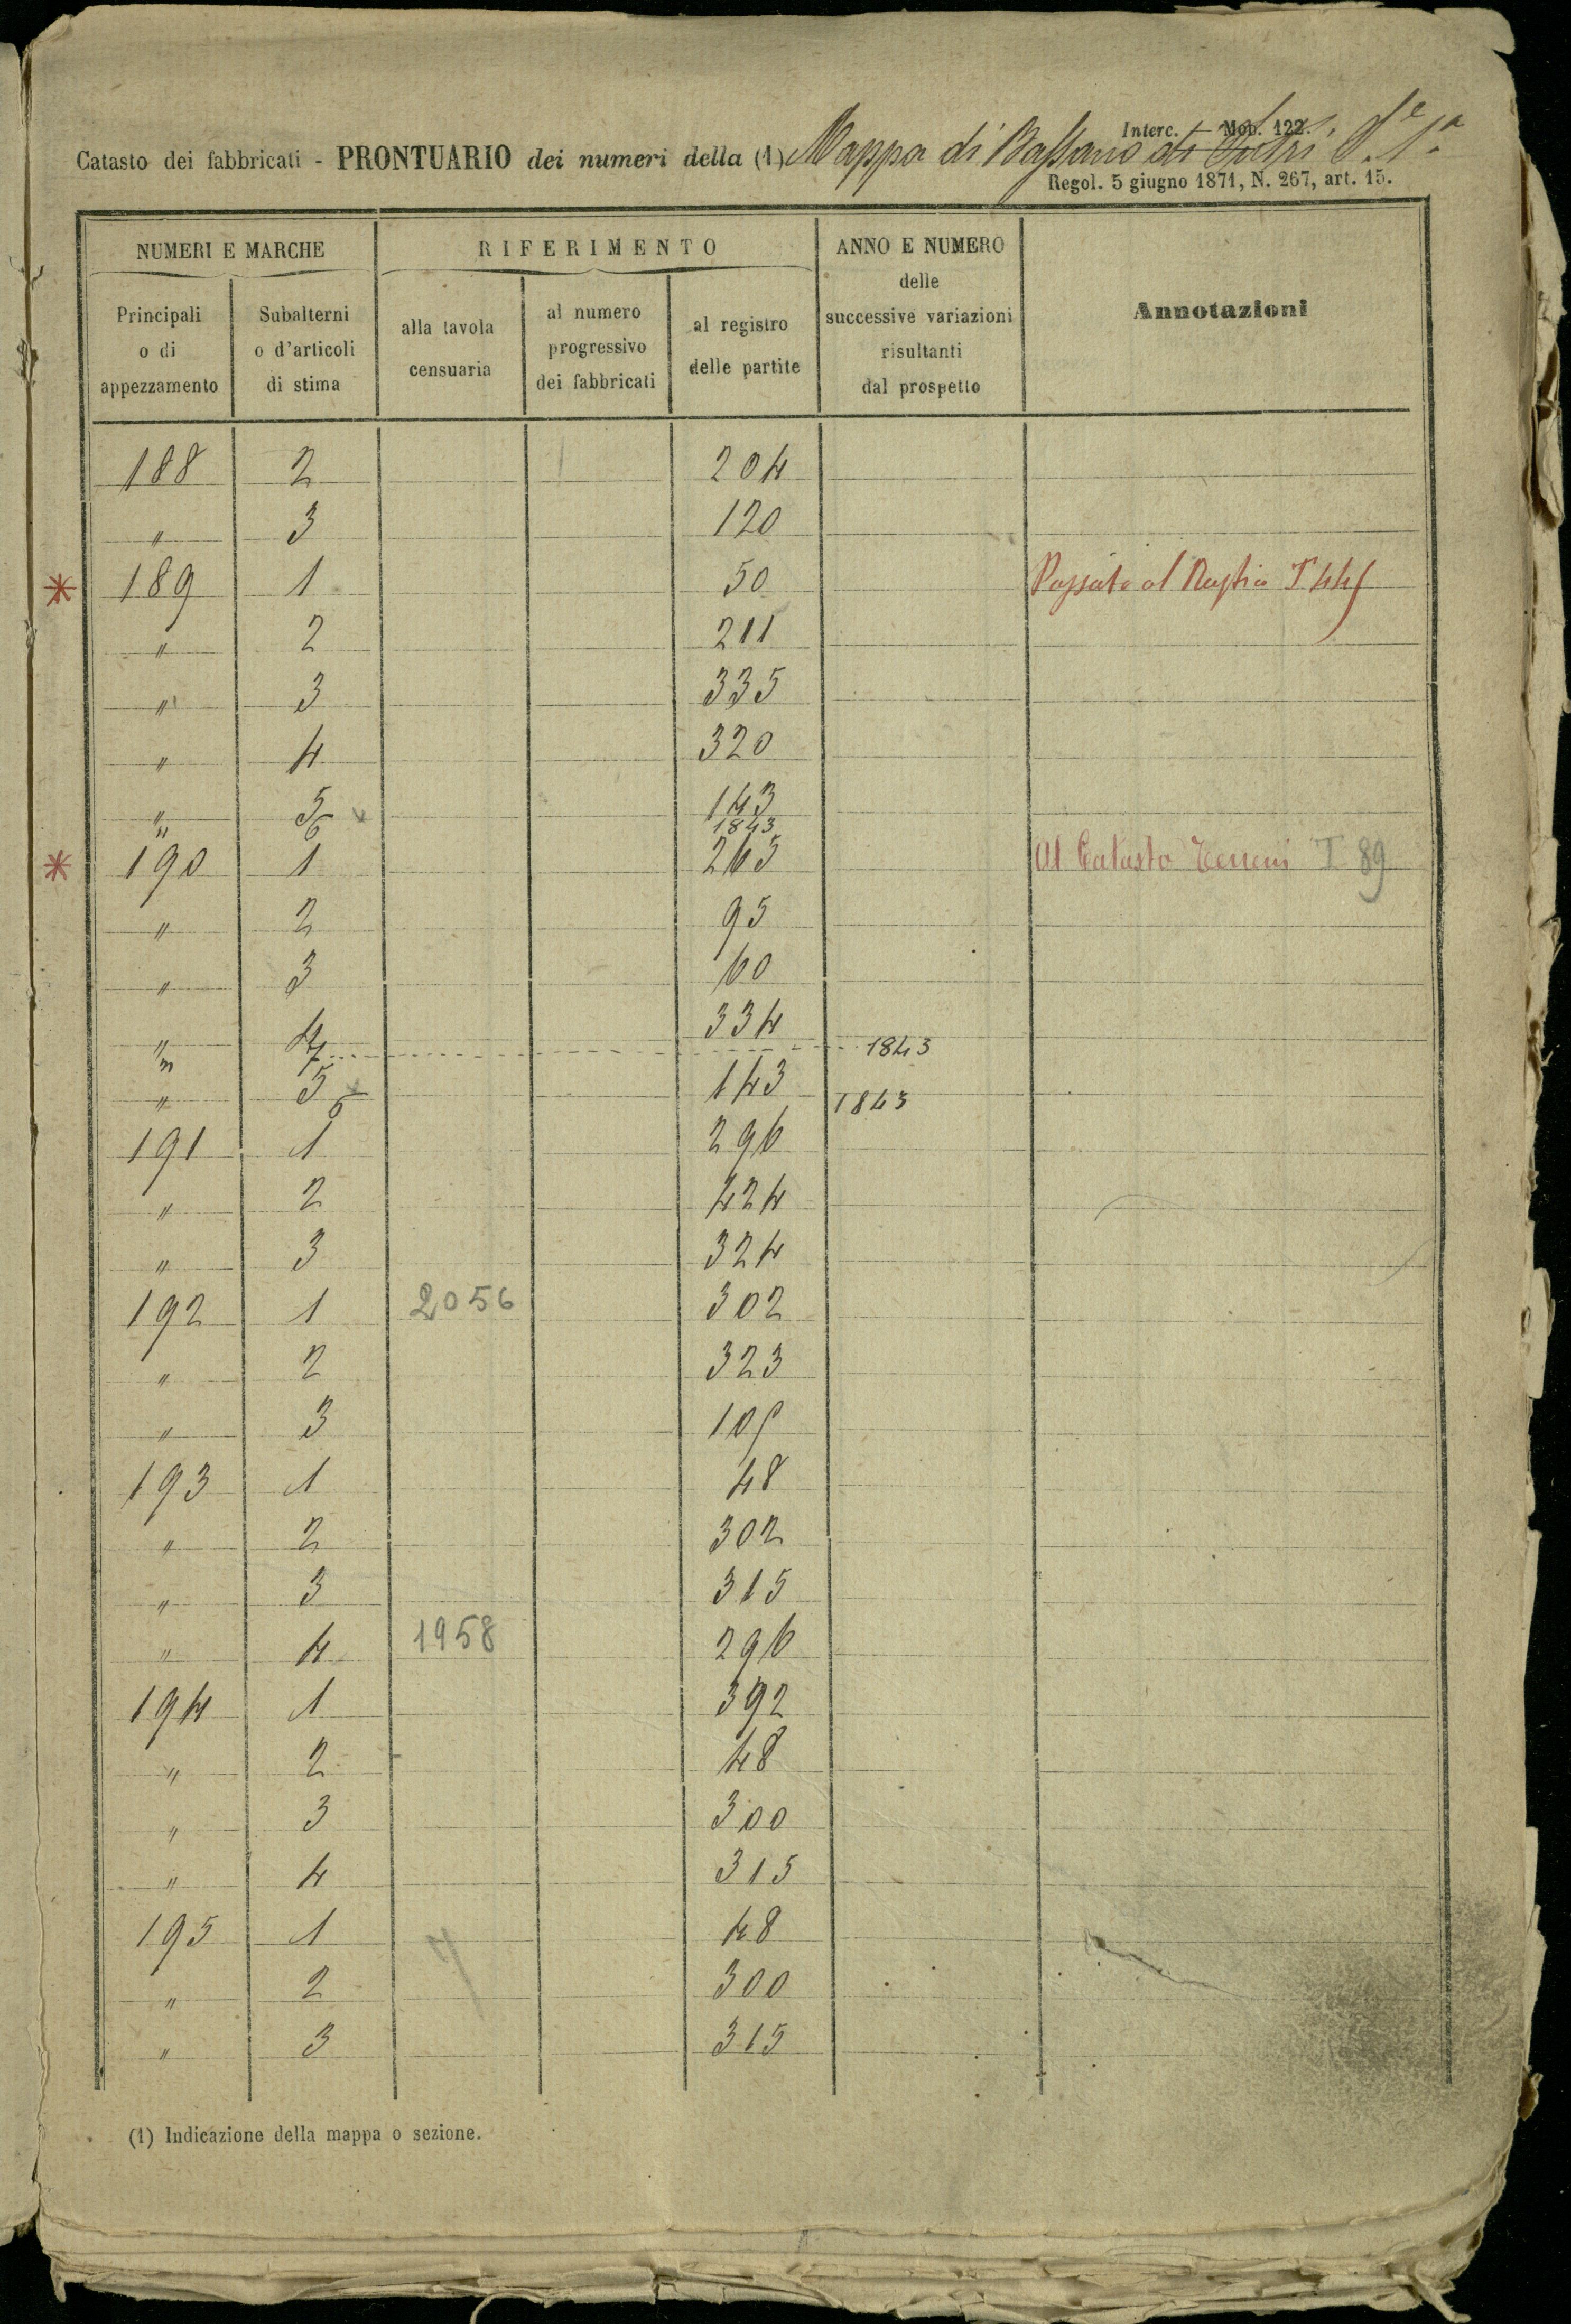 Interc. Mod. 122.
Catasto dei fabbricati - PRONTUARIO dei numeri della (1) Mappa di Bassano di Sutri Se. 1a
Regol. 5 giugno 1871, N. 267, art. 15.
NUMERI E MARCHE RIFERIMENTO ANNO E NUMERO delle successive variazioni risultanti dal prospetto Annotazioni
Principali o di appezzamento Subalterni o d'articoli di stima alla tavola censuaria al numero progressivo dei fabbricati al registro delle partite
188 2 204
" 3 120
* 189 1 50 Passato al T 445
" 2 211
" 3 335
" 4 320
" 5 143
" 6 1843
* 190 1 263 Al Catasto Terreni T 89
" 2 95
" 3 60
" 4 334
" 7 1843
" 5 143
6 1843
191 1 296
" 2 424
" 3 324
192 1 2056 302
" 2 323
" 3 105
193 1 48
" 2 302
" 3 315
" 4 1958 296
194 1 392
" 2 48
" 3 300
" 4 315
195 1 48
" 2 300
" 3 315
(1) Indicazione della mappa o sezione.